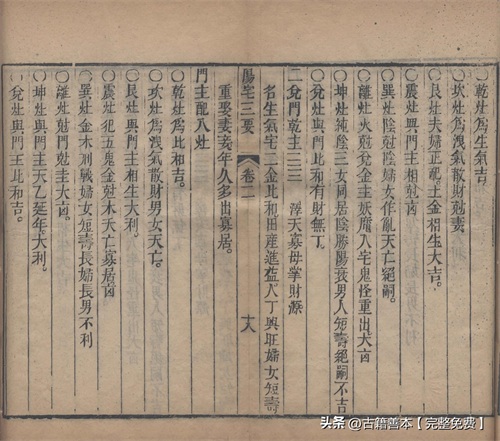 ○乾灶爲生氣吉
○坎灶爲洩氣散財尅妻
○艮灶夫婦正配土金相生大吉。
○震灶與門主相尅凶
○巽灶陰尅陰婦女作亂夭亡絕嗣。
○離灶火尅兌金主妖魔入宅鬼怪重出大凶
○坤灶純陰三女同居陰勝陽衰男人短壽絕嗣不吉
○兌灶爲比和有財無丁。
二兌門乾主三三　浮天寡母掌財源
名生氣宅二金比和田產進益人丁興旺婦女短壽
陽宅三要　卷二　十八
重娶妻妾年久多出寡居。
門主配八灶
○乾灶爲比和吉。
○坎灶爲洩氣散財男女夭亡。
○艮灶與門主相生大利。
○震灶犯五鬼金尅木夭亡寡居凶
○巽灶金木刑戰婦女短壽長婦長男不利
○離灶尅門尅主大凶。
○坤灶與門主天乙延年大利。
○兌灶與門主比和吉。
头条 @古籍善本【完整免费】